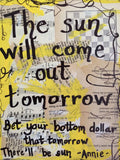 The sun
will come
out
tomorrow
Bet your bottom dollar
that tomorrow
There'll be sun -Annie-